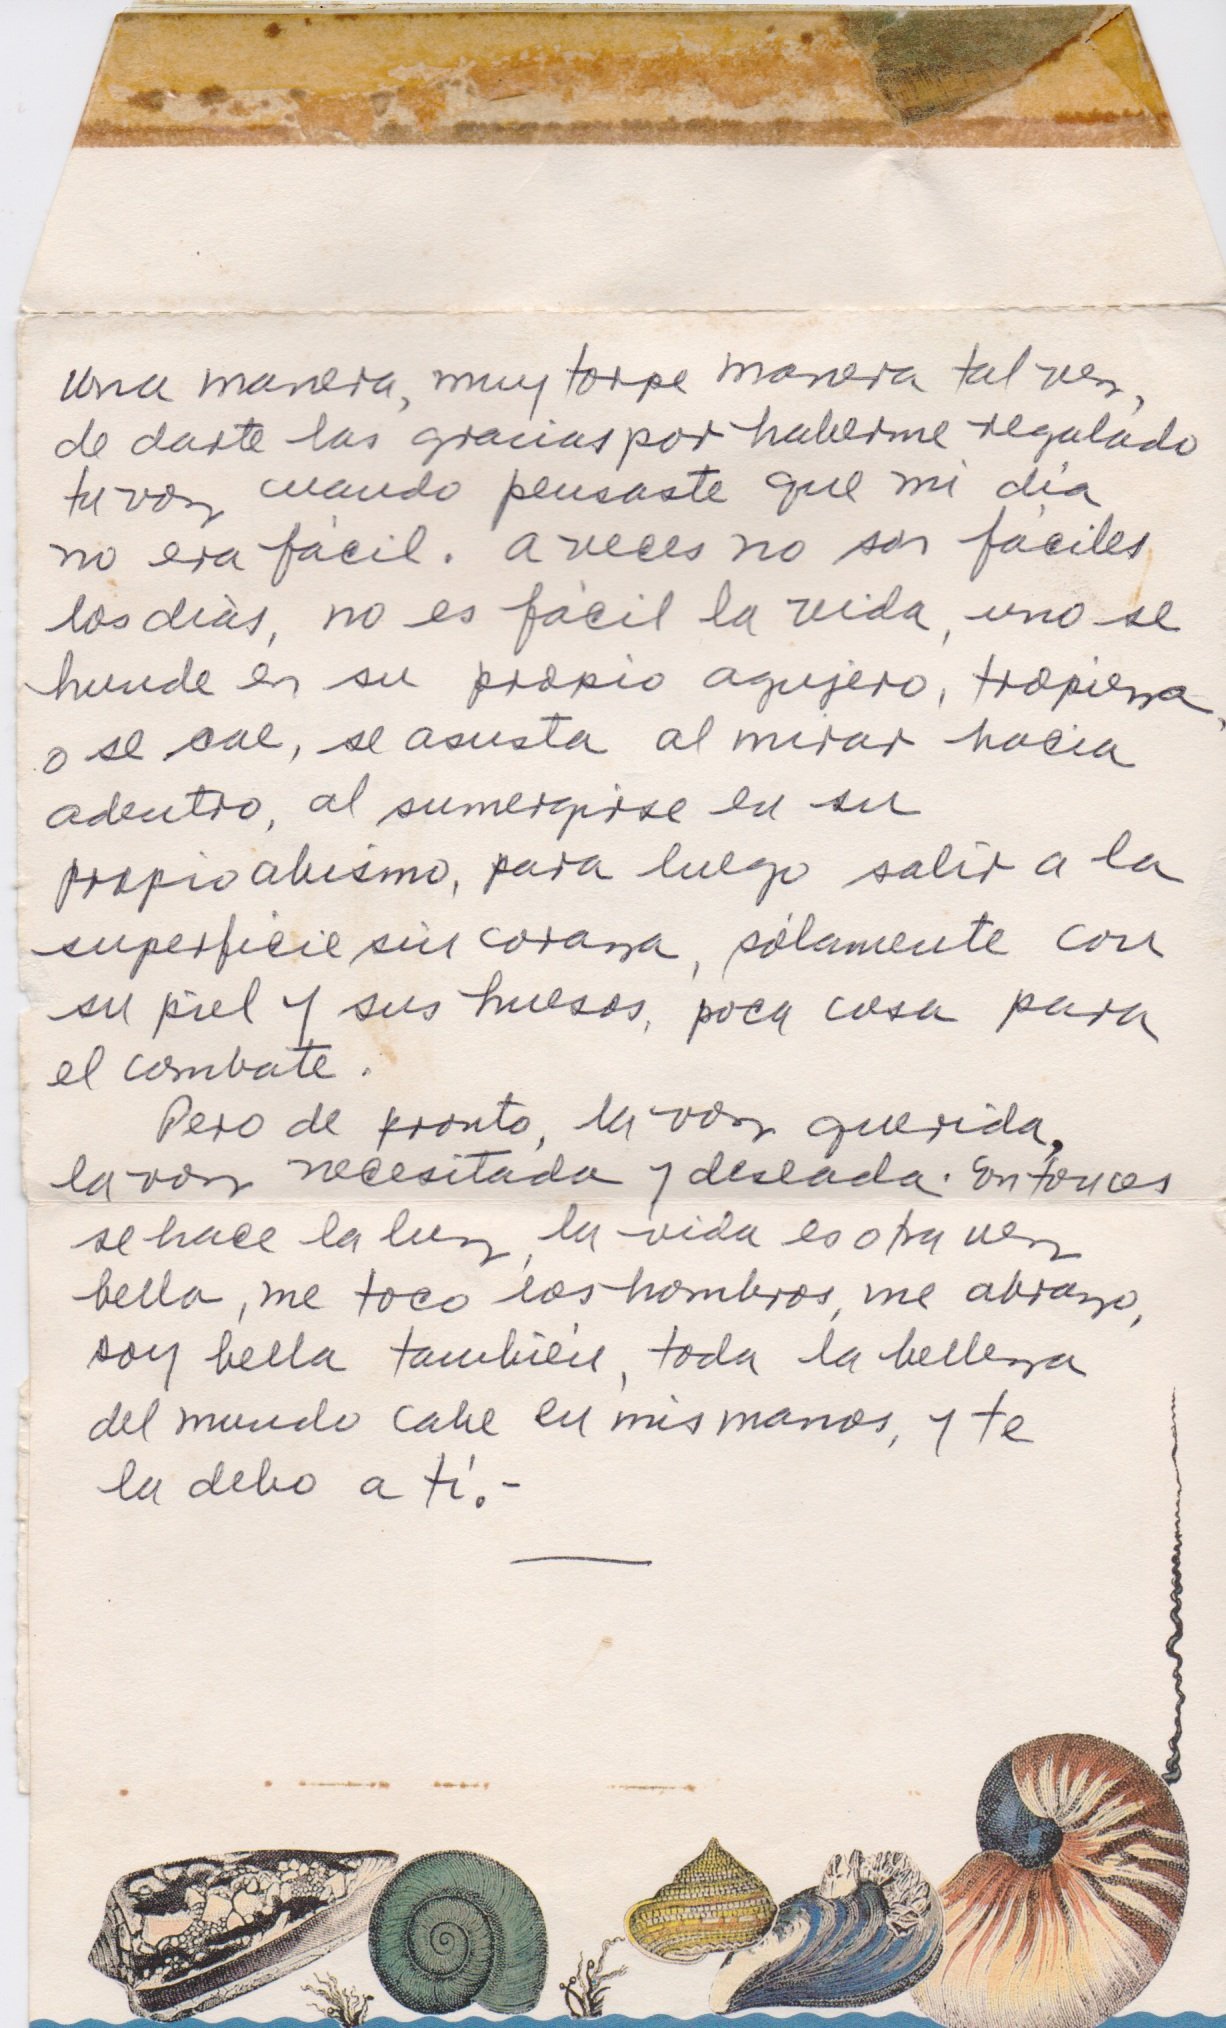 una manera, muy torpe manera tal vez,
de darte las gracias por haberme regalado
tu voz cuando pensaste que mi día
no era fácil. A veces no son fáciles
los días, no es fácil la vida, uno se
hunde en su propio agujero, tropieza,
o se cae, se asusta al mirar hacia
adentro, al sumergirse en su
propio abismo, para luego salir a la
superficie sin coraza, sólamente con
su piel y sus huesos, poca cosa para
el combate.
Pero de pronto, la voz querida,
la voz necesitada y deseada. Entonces
se hace la luz, la vida es otra vez
bella, me toco los hombros, me abrazo,
soy bella también, toda la belleza
del mundo cabe en mis manos, y te
la debo a tí.-